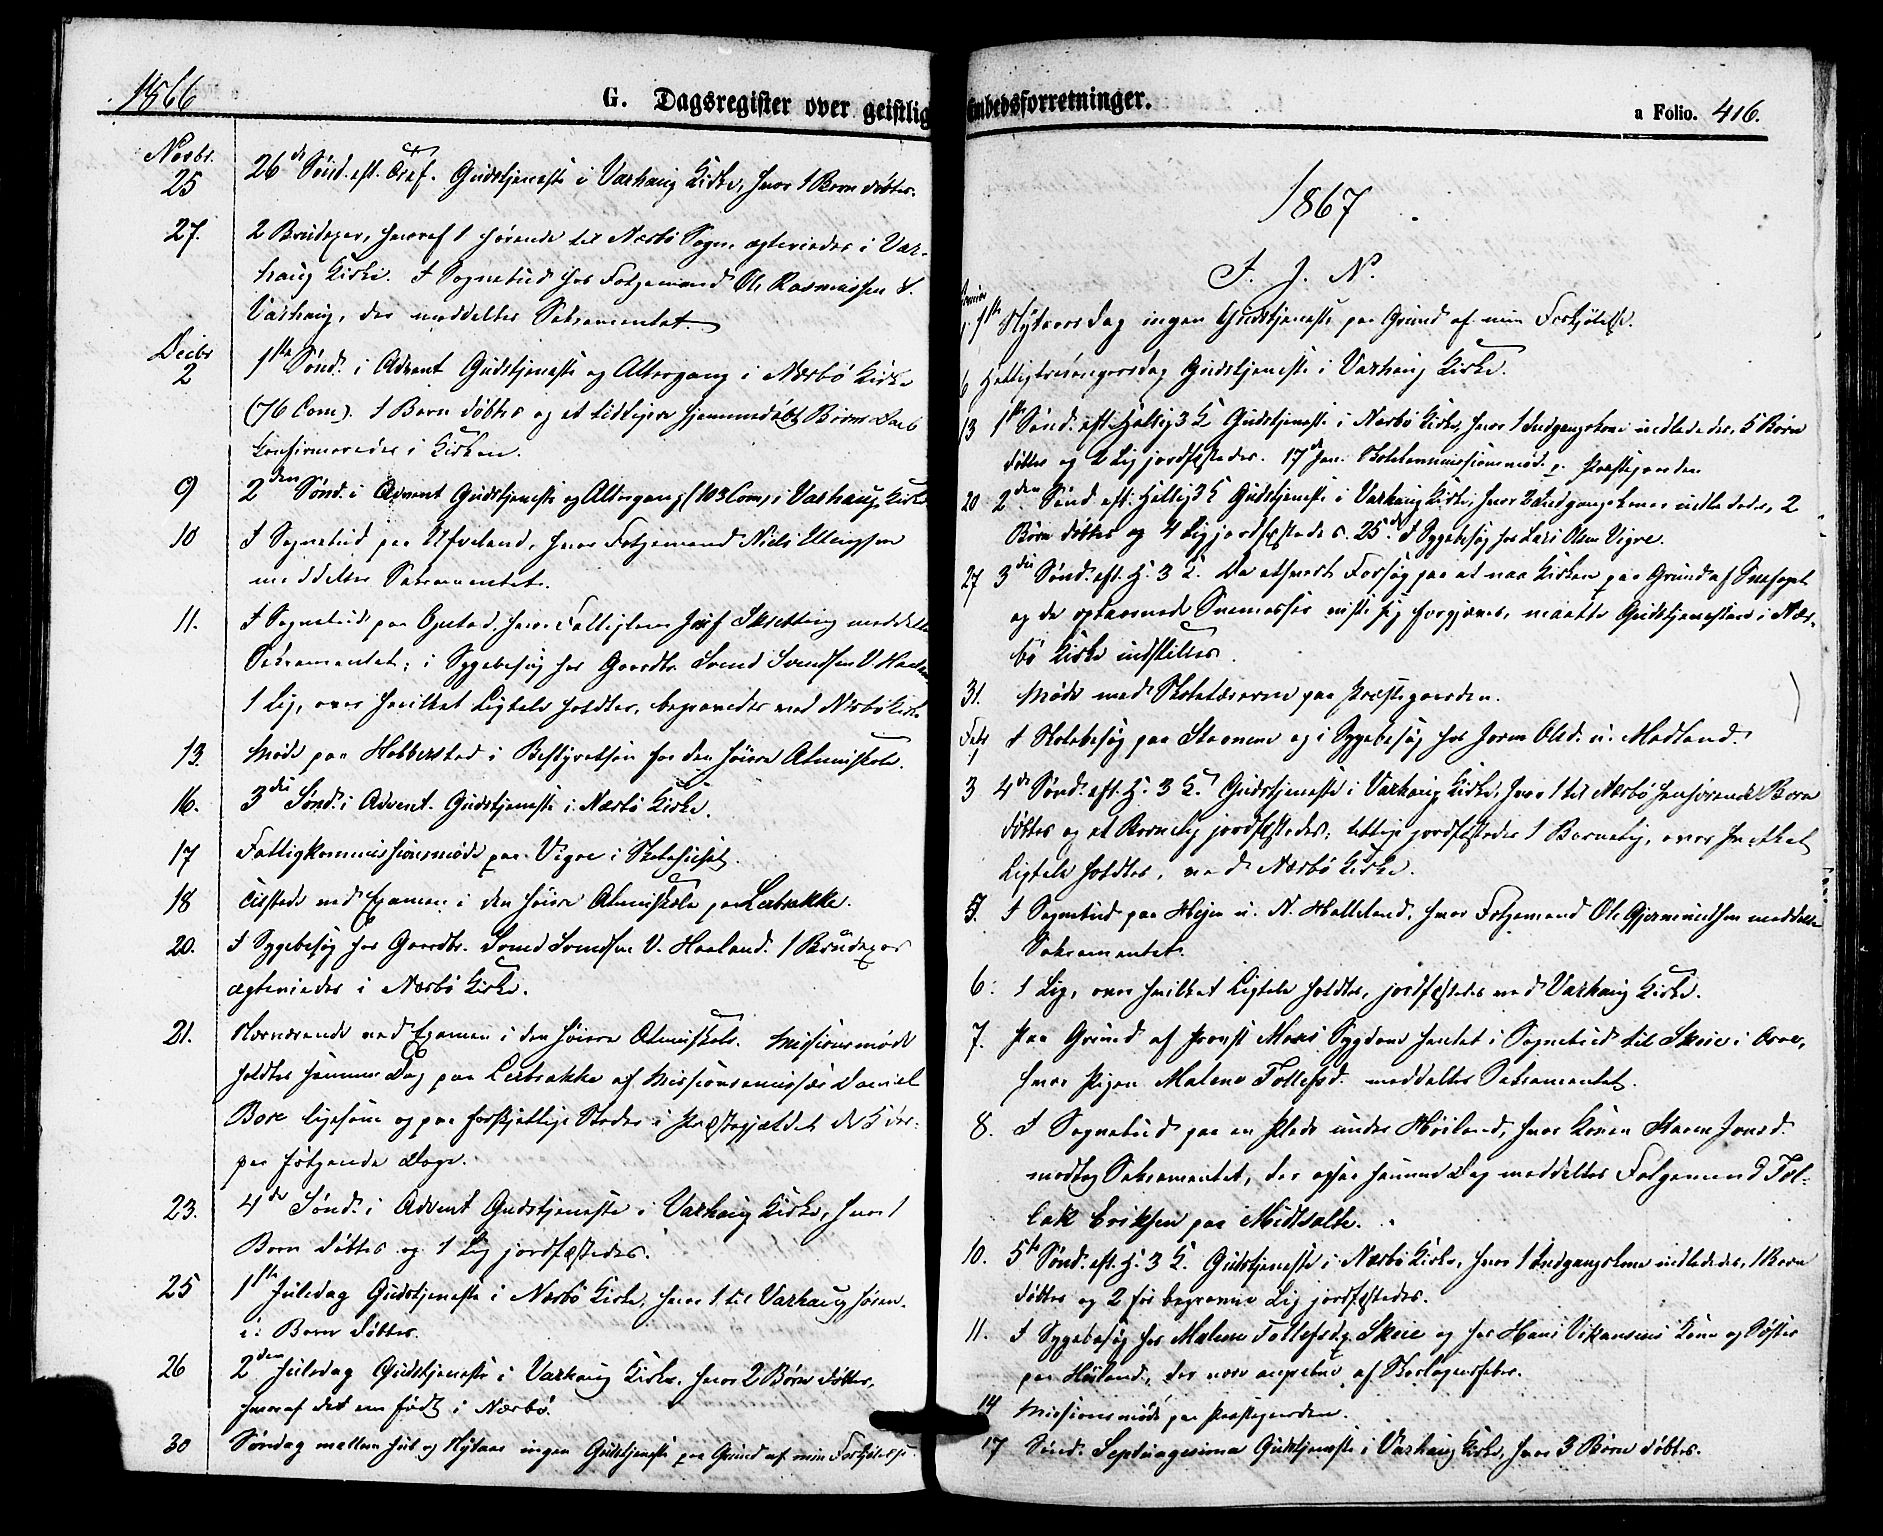 1866
G. Dagsregister over geistlig
Novbr.
25 26de Sønd. eft. Tref. Gudstjeneste i Varhaug Kirke, hvor 1 Barn døbtes.
27. 2 Brudepar, hvoraf 1 hørende til Nærbø Sogn, ægteviedes i Var-
haug Kirke. I Sognebud hos Folgemand Ole Rasmussen
Varhaug, der meddeltes Sakramentet.
Decbr
2 1ste Sønd. i Advent Gudstjeneste og Altergang i Nærbø Kirke
(76 Com). 1 Barn døbtes og et tidligere hjemmedøbt Barns Daab
konfirmeredes i Kirken.
9 2den Sønd. i Advent Gudstjeneste og Altergang (103 Com) i Varhaug Kirke
10 I Sognebud paa hvor Folgemand Niels
meddeltes Sakramentet.
11. I Sognebud paa Opstad, hvor Fattiglem Skretting meddeltes
Sakramentet; i Sygebesøg hos Gaardbr. Svend Svendsen V. Haaland
1 Lig, over hvilket Ligtale holdtes, begravedes ved Nærbø Kirke
13. Møde paa Hobberstad i Bestyrelsen for den høiere Almueskole.
16. 3die Sønd. i Advent. Gudstjeneste i Nærbø Kirke.
17 Fattigkommissionsmøde paa Vigre i Skolehuset.
18 Tilstede ved Examen i den høiere Almueskole paa Lerbrække.
20. I Sygebesøg hos Gaardbr. Svend Svendsen V. Haaland. 1 Brudepar
ægteviedes i Nærbø Kirke.
21. Nærværende ved Examen i den høiere Almueskole. Missionsmøde
holdtes samme Dag paa Lerbrække af Missionsemissær Daniel
Bore ligesom og paa forskjellige Steder i Præstegjældet
paa følgende Dage.
23. 4de Sønd. i Advent Gudstjeneste i Varhaug Kirke, hvor 1
Barn døbtes og 1 Lig jordfæstedes.
25 1ste Juledag Gudstjeneste i Nærbø Kirke, hvor 1 til Varhaug høren-
de Barn døbtes.
26 2den Juledag Gudstjeneste i Varhaug Kirke, hvor 2 Børn døbtes,
hvoraf det ene født i Nærbø.
30 Søndag mellem Jul og Nytaar ingen Gudstjeneste paa Grund af min Forkjølelse.
Embedsforretninger.
a Folio. 416.
1867
I. J. N.
1 1ste Nytaarsdag ingen Gudstjeneste paa Grund af min Forkjølelse.
6 Helligtrekongersdag Gudstjeneste i Varhaug Kirke.
13 1ste Sønd. eft. Hellig 3 K. Gudstjeneste i Nærbø Kirke, hvor 1 Indgangskone indlededes, 5 Børn
døbtes og 2 Lig jordfæstedes. 17de Jan. Skolekommissionsmøde p. Præstegaarden
20 2den Sønd. eft. Hellig 3 K. Gudstjeneste i Varhaug Kirke, hvor 2 Indgangskoner indlededes, 2
Børn døbtes og 4 Lig jordfæstedes. 25de. I Sygebesøg hos Lars Olsen Vigre.
27 3die Sønd. eft. H. 3 K. Da ethvert Forsøg paa at naa Kirken paa Grund af Snefoget
og de optaarnede Snemasser viste sig forgjæves, maatte Gudstjenesten i Nær-
bø Kirke indstilles.
31. Møde med Skolelærerne paa Præstegaarden.
Febr
1 I Skolebesøg paa Stavnem og i Sygebesøg hos Olsd. u. Madland.
3 4de Sønd. eft. H. 3 K. Gudstjeneste i Varhaug Kirke, hvor 1 til Nærbø henhørende Barn
døbtes og et Barnelig jordfæstedes; tillige jordfæstedes 1 Barnelig, over hvilket
Ligtale holdtes, ved Nærbø Kirke.
5. I Sognebud paa u. N. Hølleland, hvor Folgemand Ole Gjermundsen meddeltes
Sakramentet.
6. 1 Lig, over hvilket Ligtale holdtes, jordfæstedes ved Varhaug Kirke.
7. Paa Grund af Provst Sygdom hentet i Sognebud til Skeie i Ogne,
hvor Pigen Malene Tollefsd. meddeltes Sakramentet.
8. I Sognebud paa en Plads under Høiland, hvor Konen Karen Jonsd.
modtog Sakramentet, der ogsaa samme Dag meddeltes Folgemand Tol-
lak Eriksen paa
10. 5te Sønd. eft. H. 3 K. Gudstjeneste i Nærbø Kirke, hvor 1 Indgangskone indlededes, 1 Barn
døbtes og 2 før begravne Lig jordfæstedes.
11. I Sygebesøg hos Malene Tollefsd. Skeie og hos Hans Kone og Søster
paa Høiland, der vare angrebne af Skarlagensfeber.
14 Missionsmøde paa Præstegaarden.
17 Sønd. Septuagesima Gudstjeneste i Varhaug Kirke, hvor 3 Børn døbtes.